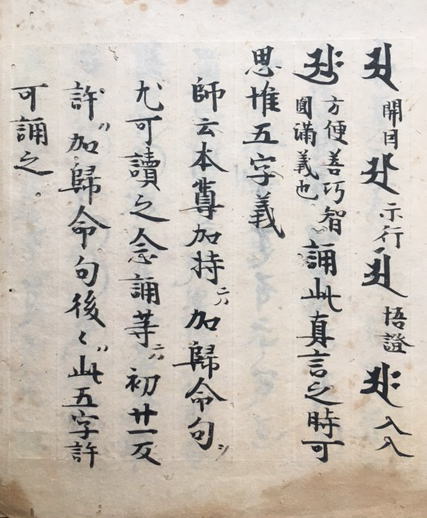 開 示行 悟證 入入
方便善巧智圓滿義也 誦此真言之時可
思堆五字義
師云本尊加持ニハ加歸命句
尤可讀之念誦等ニハ初廿一反
許ハ加歸命句後〻ハ此五字許
可誦之。